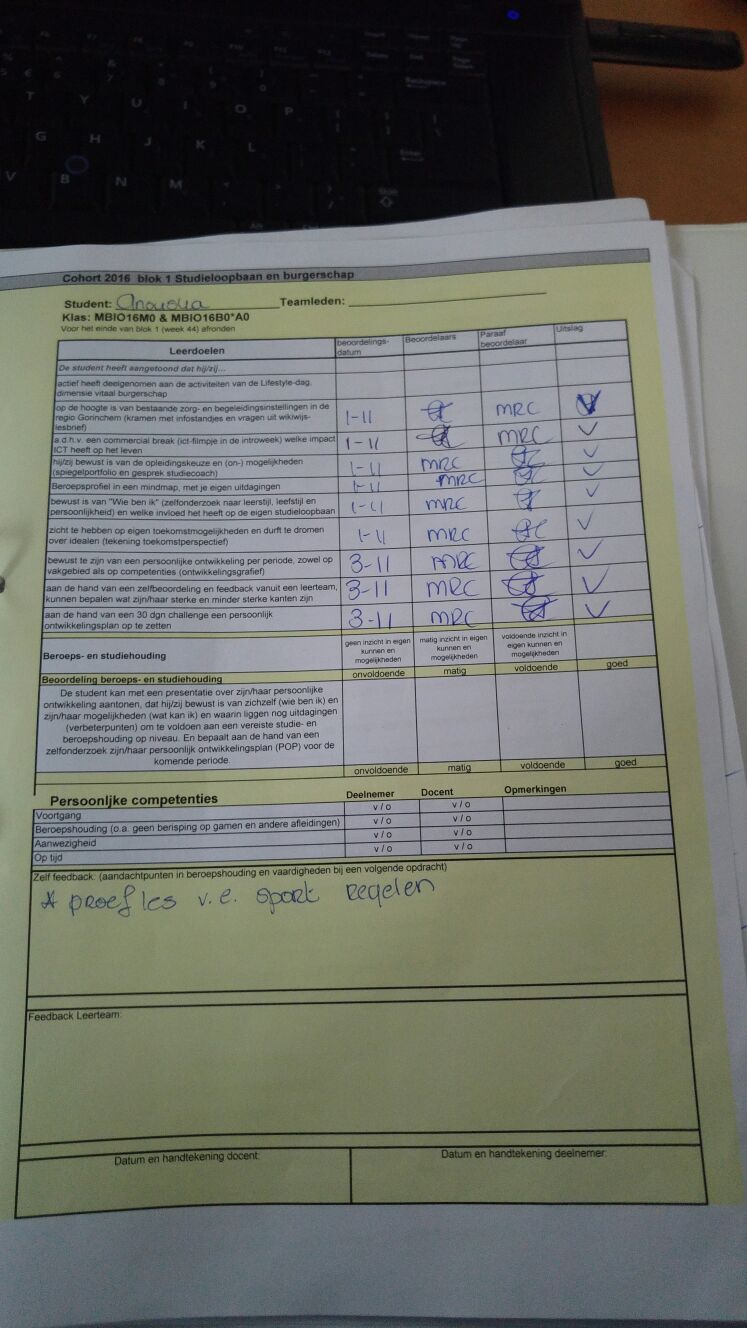 Cohort 2016 blok 1 Studieloopbaan en burgerschap
Student: Anouska Teamleden:
Klas: MBIO16M0 & MBIO16B0*A0
Voor het einde van blok 1 (week 44) afronden
Leerdoelen beoordelings-datum Beoordelaars Paraaf beoordelaar Uitslag
De student heeft aangetoond dat hij/zij...
actief heeft deelgenomen aan de activiteiten van de Lifestyle-dag,
dimensie vitaal burgerschap
op de hoogte is van bestaande zorg- en begeleidingsinstellingen in de
regio Gorinchem (kramen met infostandjes en vragen uit wikiwijs-
lesbrief) 1-11 MRC
a.d.h.v. een commercial break (ict-filmpje in de introweek) welke impact
ICT heeft op het leven 1-11 MRC
hij/zij bewust is van de opleidingskeuze en (on-) mogelijkheden
(spiegelportfolio en gesprek studiecoach) 1-11 MRC
Beroepsprofiel in een mindmap, met je eigen uitdagingen 1-11 MRC
bewust is van "Wie ben ik" (zelfonderzoek naar leerstijl, leefstijl en
persoonlijkheid) en welke invloed het heeft op de eigen studieloopbaan 1-11 MRC
zicht te hebben op eigen toekomstmogelijkheden en durft te dromen
over idealen (tekening toekomstperspectief) 1-11 MRC
bewust te zijn van een persoonlijke ontwikkeling per periode, zowel op
vakgebied als op competenties (ontwikkelingsgrafief) 3-11 MRC
aan de hand van een zelfbeoordeling en feedback vanuit een leerteam,
kunnen bepalen wat zijn/haar sterke en minder sterke kanten zijn 3-11 MRC
aan de hand van een 30 dgn challenge een persoonlijk
ontwikkelingsplan op te zetten 3-11 MRC
Beroeps- en studiehouding geen inzicht in eigen kunnen en mogelijkheden matig inzicht in eigen kunnen en mogelijkheden voldoende inzicht in eigen kunnen en mogelijkheden
Beoordeling beroeps- en studiehouding onvoldoende matig voldoende goed
De student kan met een presentatie over zijn/haar persoonlijke
ontwikkeling aantonen, dat hij/zij bewust is van zichzelf (wie ben ik) en
zijn/haar mogelijkheden (wat kan ik) en waarin liggen nog uitdagingen
(verbeterpunten) om te voldoen aan een vereiste studie- en
beroepshouding op niveau. En bepaalt aan de hand van een
zelfonderzoek zijn/haar persoonlijk ontwikkelingsplan (POP) voor de
komende periode.
onvoldoende matig voldoende goed
Persoonlijke competenties Deelnemer Docent Opmerkingen
Voortgang v / o v / o
Beroepshouding (o.a. geen berisping op gamen en andere afleidingen) v / o v / o
Aanwezigheid v / o v / o
Op tijd v / o v / o
Zelf feedback: (aandachtpunten in beroepshouding en vaardigheden bij een volgende opdracht)
* proefles v.e. sport regelen
Feedback Leerteam:
Datum en handtekening docent: Datum en handtekening deelnemer: